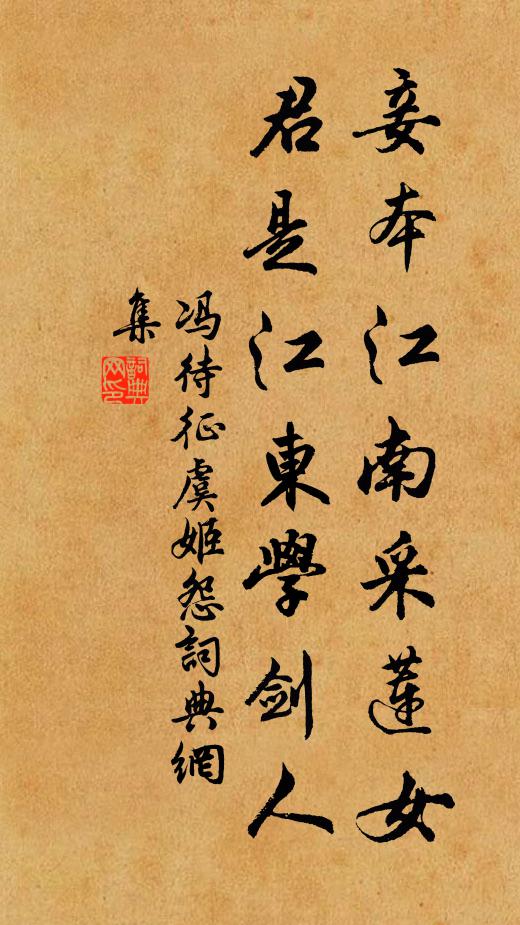 妾本江南采蓮女
君是江東學劍人
冯待征虞姬怨詞典網
集
詞典网印